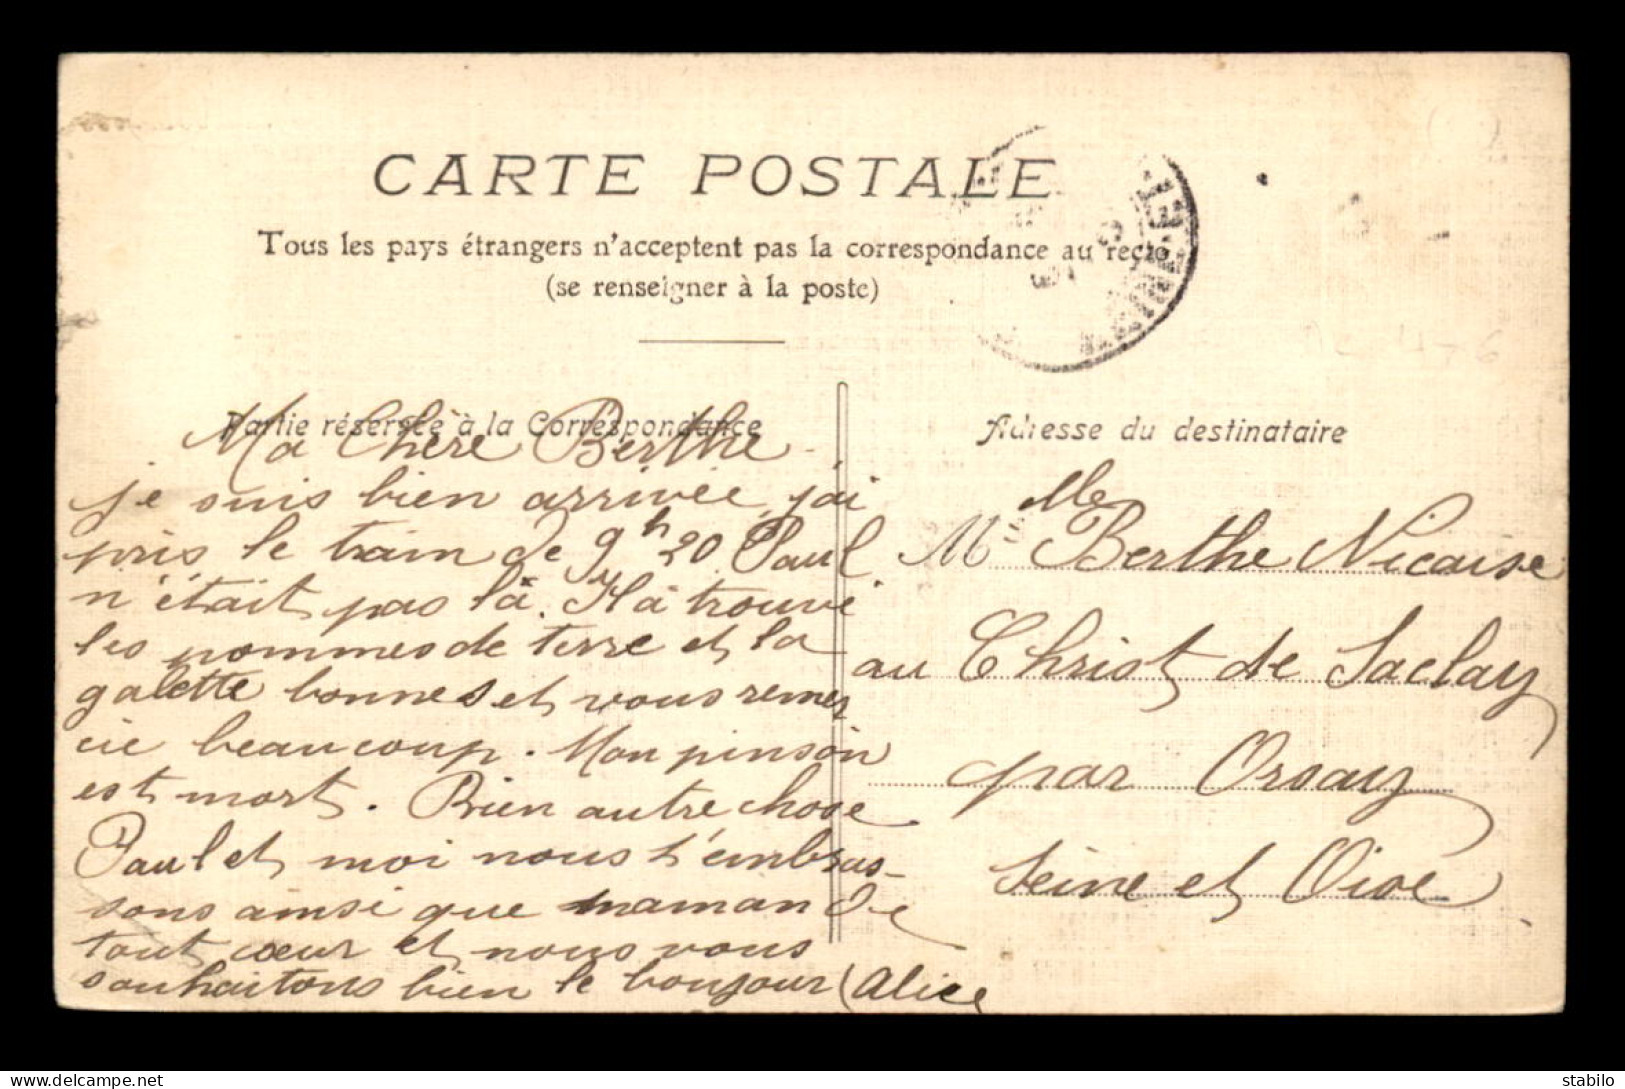 CARTE POSTALE
Tous les pays étrangers n'acceptent pas la correspondance au recto
(se renseigner à la poste)
Partie réservée à la Correspondance
Ma Chère Berthe
je suis bien arrivée, jai
pris le train de 9h20 Paul
n'était pas là. Il a trouvé
les pommes de terre et la
galette bonnes et vous remer
cie beaucoup. Mon pinson
est mort. Rien autre chose
Paul et moi nous t'embras-
sons ainsi que maman de
tout cœur et nous vous
souhaitons bien le bonjour (Alice
Adresse du destinataire
Melle Berthe Nicaise
au Christ de Saclay
par Orsay
Seine et Oise
delcampe.net
stabilo